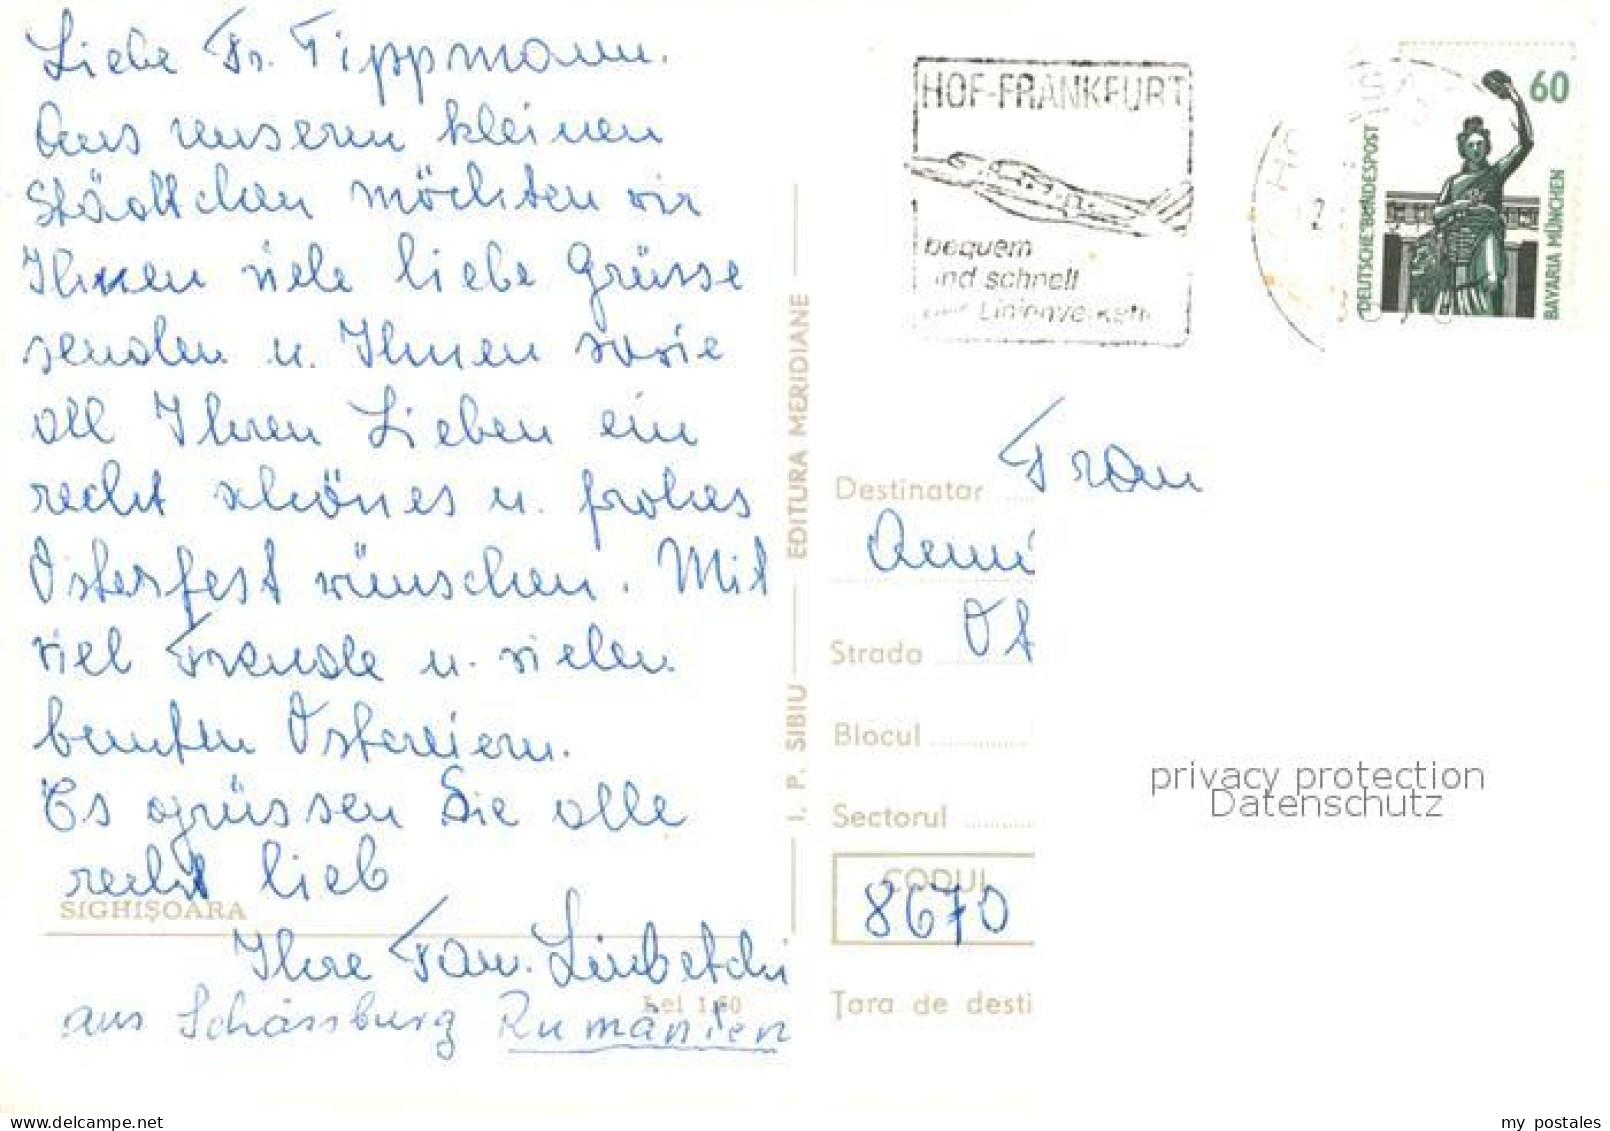 Liebe Fr. Tippmann.
Aus unserm kleinen
Städtchen möchten wir
Ihnen viele liebe Grüsse
senden u. Ihnen sowie
all Ihren Lieben ein
recht schönes u. frohes
Osterfest wünschen. Mit
viel Freude u. vielen
bunten Ostereiern.
Es grüssen Sie alle
recht lieb
SIGHIŞOARA
Ihre Fam.
aus Schässburg Rumänien
Lei 1,60
I. P. SIBIU
EDITURA MERIDIANE
HOF-FRANKFURT
bequem
und schnell
Linienverkehr
60
DEUTSCHE BUNDESPOST
BAVARIA MÜNCHEN
Destinatar
Frau
Strada
Blocul
Sectorul
CODUL
8670
Ţara de desti
privacy protection
Datenschutz
www.delcampe.net
my_postales